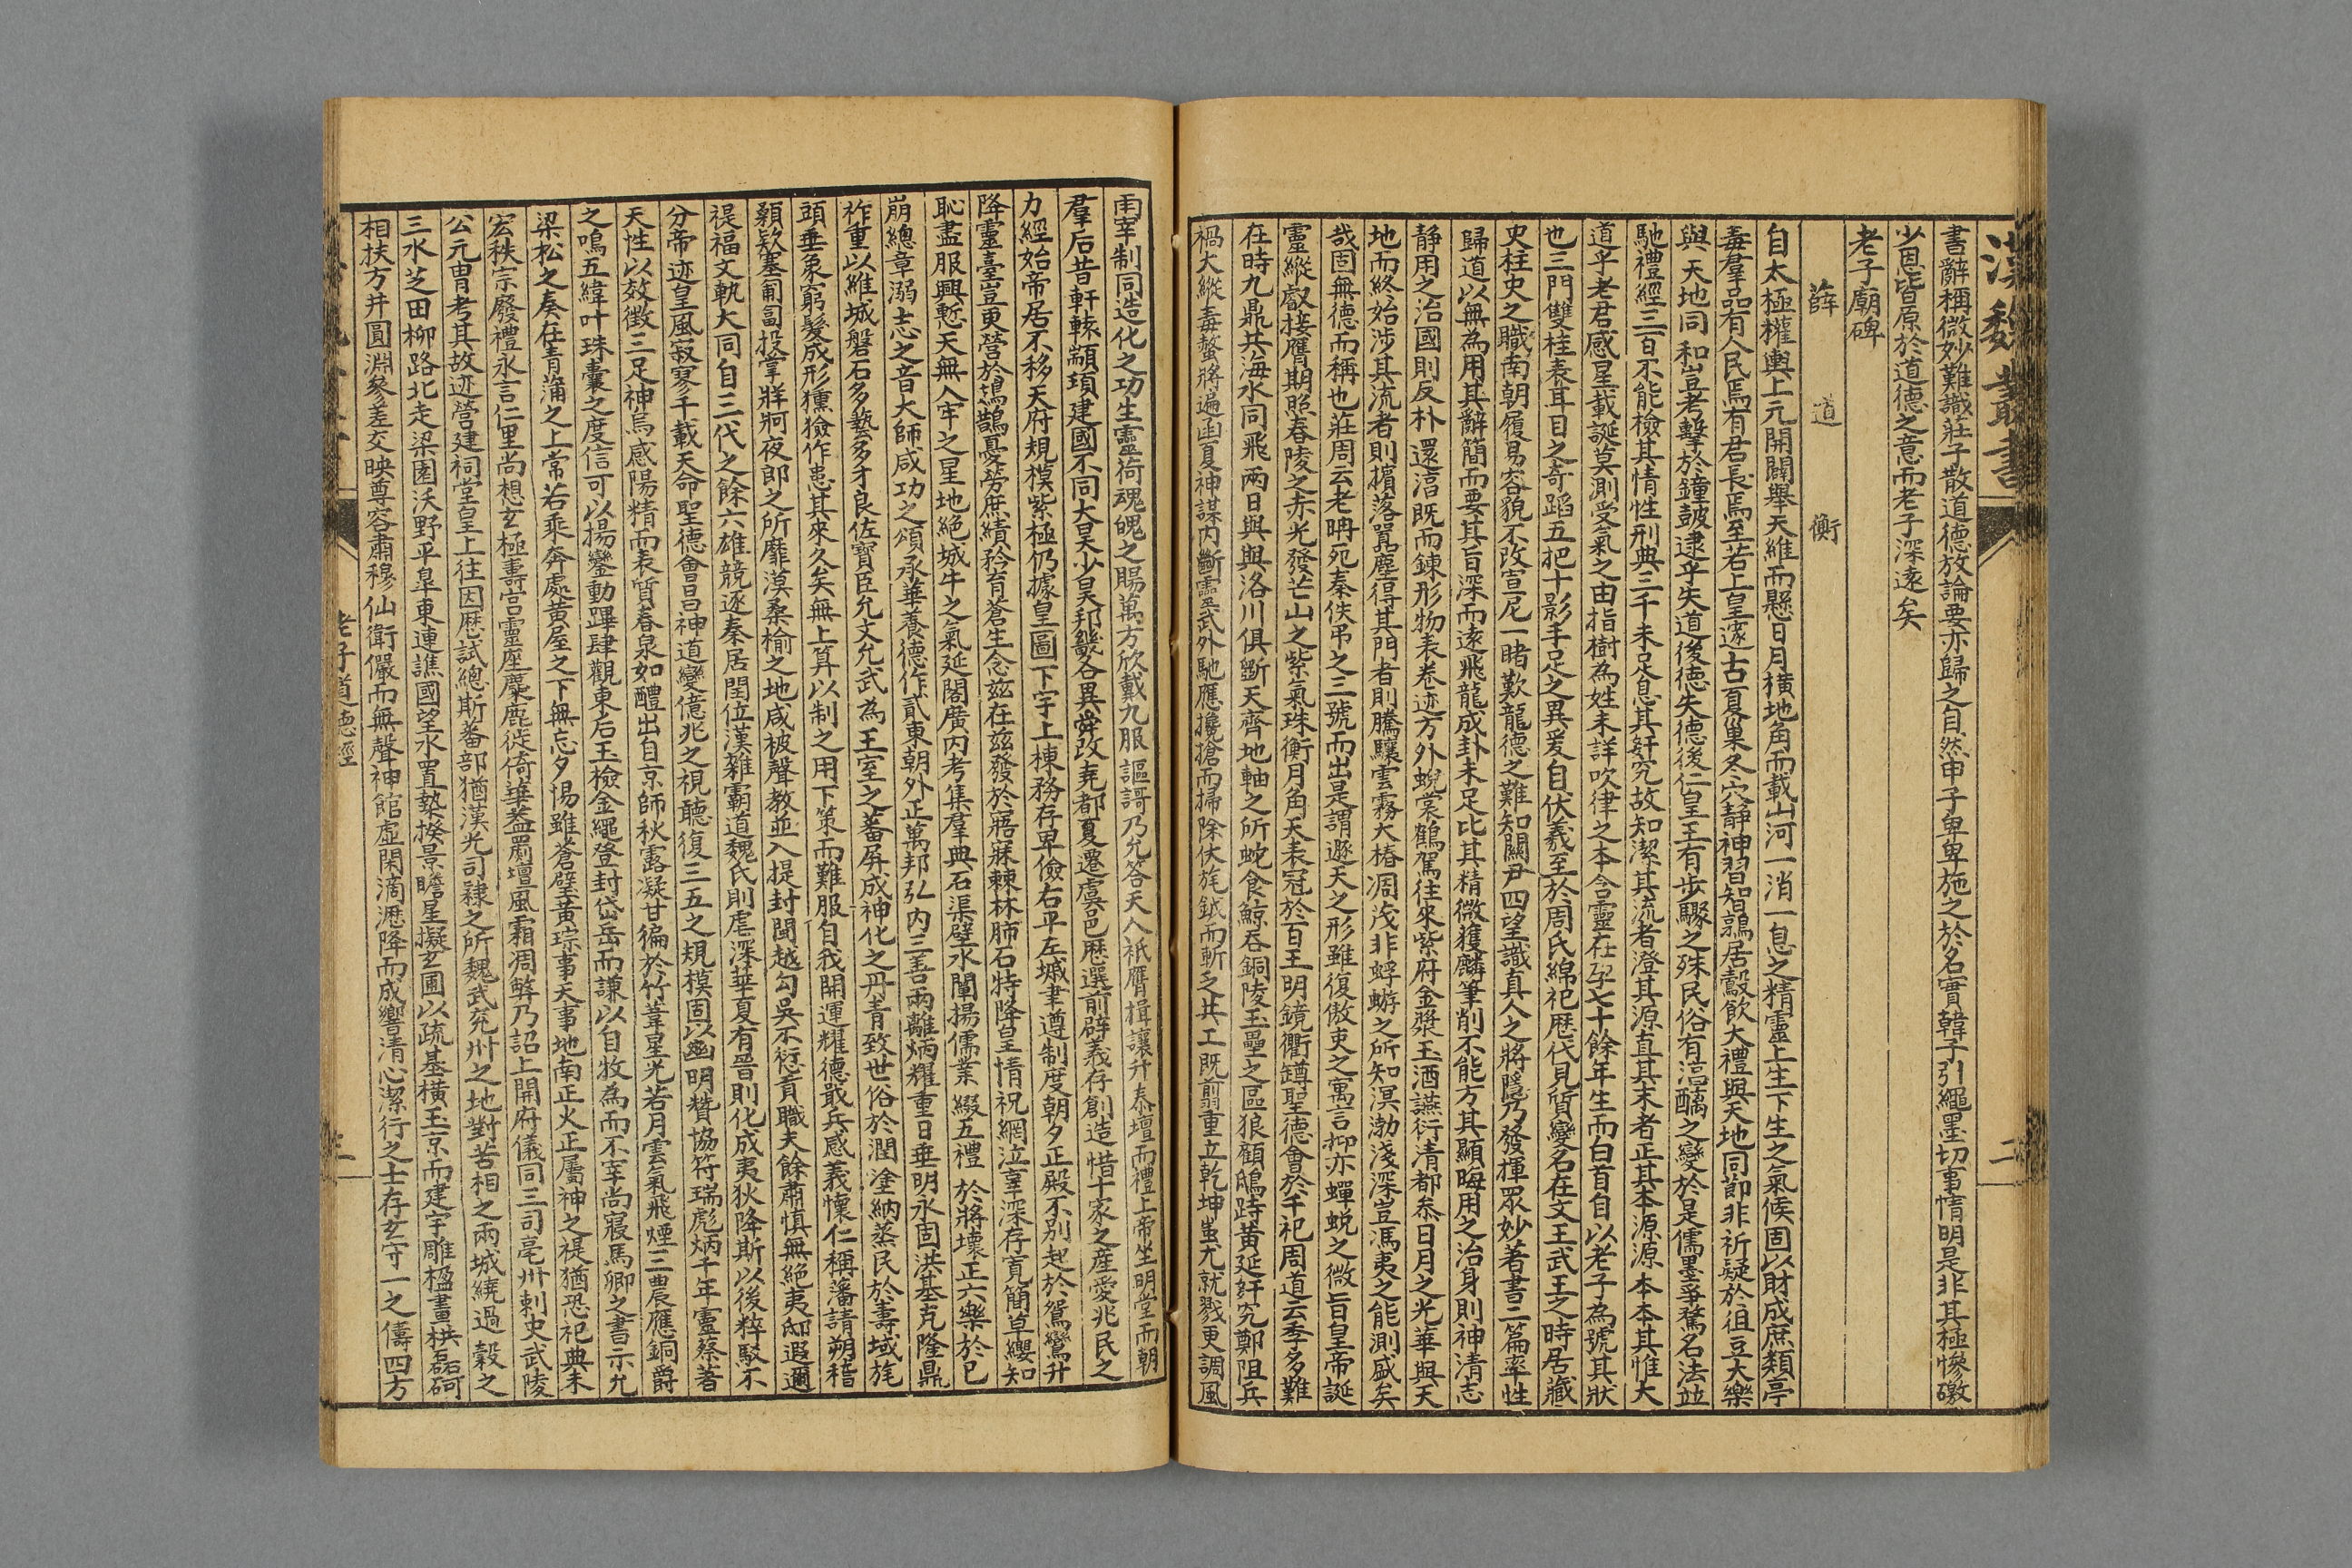 漢魏叢書
二
書辭稱微妙難識莊子散道德放論要亦歸之自然申子卑卑施之於名實韓子引繩墨切事情明是非其極慘礉
少恩皆原於道德之意而老子深遠矣
老子廟碑
薛道衡
自太極權輿上元開闢舉天維而懸日月橫地角而載山河一消一息之精靈上生下生之氣候固以財成庶類亭
毒羣品有人民焉有君長焉至若上皇邃古夏巢冬穴靜神習智鶉居鷇飲大禮與天地同節非祈疑於俎豆大樂
與天地同和豈考擊於鐘鼓逮乎失道後德失德後仁皇王有步驟之殊民俗有澆醨之變於是儒墨爭騖名法竝
馳禮經三百不能檢其情性刑典三千未足息其奸宄故知潔其流者澄其源直其末者正其本源源本本其惟大
道乎老君感星載誕莫測受氣之由指樹為姓未詳吹律之本含靈在孕七十餘年生而白首自以老子為號其狀
也三門雙柱表耳目之奇蹈五把十影手足之異爰自伏羲至於周氏綿祀歷代見質變名在文王武王之時居藏
史柱史之職南朝履易容貌不改宣尼一睹歎龍德之難知關尹四望識真人之將隱乃發揮眾妙著書二篇率性
歸道以無為用其辭簡而要其旨深而遠飛龍成卦未足比其精微獲麟筆削不能方其顯晦用之治身則神清志
靜用之治國則反朴還淳既而鍊形物表卷迹方外蜺裳鶴駕往來紫府金漿玉酒讌衍清都叅日月之光華與天
地而終始涉其流者則擯落囂塵得其門者則騰驤雲霧大椿凋茂非蜉蝣之所知溟渤淺深豈馮夷之能測盛矣
哉固無德而稱也莊周云老聃死秦佚弔之三號而出是謂遯天之形雖復傲吏之寓言抑亦蟬蛻之微旨皇帝誕
靈縱叡接膺期照春陵之赤光發芒山之紫氣珠衡月角天表冠於百王明鏡衢罇聖德會於千祀周道云季多難
在時九鼎共海水同飛兩日與洛川俱鬭天齊地軸之所蛇食鯨吞銅陵玉壘之區狼顧鴟跱黃延奸宄鄭阻兵
禍大縱毒螫將遍函夏神謀內斷靈武外馳應攙搶而掃除伏旄鉞而斬之共工既翦重立乾坤蚩尤就戮更調風
雨宰制同造化之功生靈荷魂魄之賜萬方欣戴九服謳謌乃允答天人祇膺揖讓升泰壇而禮上帝坐明堂而朝
羣后昔軒轅顓頊建國不同大昊少昊邦畿各異舜改堯都夏遷虞邑歷選前辟義存創造惜十家之產愛兆民之
力經始帝居不移天府規模紫極仍據皇圖下宇上棟務存卑儉右平左墄聿遵制度朝夕正殿不別起於鴛鸞升
降靈臺豈更營於鳷鵲憂勞庶績矜育蒼生念茲在茲發於寤寐棘林肺石特降皇情祝網泣辜深存寬簡草纓知
恥盡服興慙天無入牢之星地絕城牛之氣延閣廣內考集羣典石渠壁水闡揚儒業綴五禮於將壞正六樂於已
崩總章溺志之音大師咸功之頌承華養德作貳東朝外正萬邦弘內三善兩離炳耀重日垂明永固洪基克隆鼎
祚重以維城磐石多藝多才良佐寶臣允文允武為王室之蕃屏成神化之丹青致世俗於潤塗納蒸民於壽域旄
頭垂象窮髮成形獯獫作患其來久矣無上算以制之用下策而難服自我開運耀德戢兵感義懷仁稱藩請朔稽
顙款塞匍匐投掌牂牁夜郎之所靡漠桑榆之地咸被聲教並入提封閩越勾吳不愆貢職夫餘肅慎無絕夷邸遐邇
禔福文軌大同自三代之餘六雄競逐秦居閏位漢雜霸道魏氏則虐深華夏有晉則化成夷狄降斯以後粹駁不
分帝迹皇風寂寥千載天命聖德會昌神道變億兆之視聽復三五之規模固以幽明贊協符瑞彪炳千年靈蔡著
天性以效徵三足神烏感陽精而表質春泉如醴出自京師秋露凝甘徧於竹葦星光若月雲氣飛煙三農應銅爵
之鳴五緯叶珠囊之度信可以揚鑾動蹕肆觀東后玉檢金繩登封岱岳而謙以自牧為而不宰尚寢馬卿之書未允
梁松之奏在青蒲之上常若乘奔處黃屋之下無忘夕惕雖蒼璧黃琮事天事地南正火正屬神之禔猶恐祀典未
宏秩宗廢禮永言仁里尚想玄極壽宮靈座麋鹿徙倚華蓋罽壇風霜凋弊乃詔上開府儀同三司亳州刺史武陵
公元胄考其故迹營建祠堂皇上往因歷試總斯蕃部猶漢光司隸之所魏武兖州之地對苦相之兩城繞過穀之
三水芝田柳路北走梁園沃野平皐東連譙國望水置槷揆景瞻星擬玄圃以疏基橫玉京而建宇雕楹畫栱磊砢
相扶方井圓淵參差交映尊容肅穆仙衛儼而無聲神館虛閑滴瀝降而成響清心潔行之士存玄守一之儔四方
老子道德經